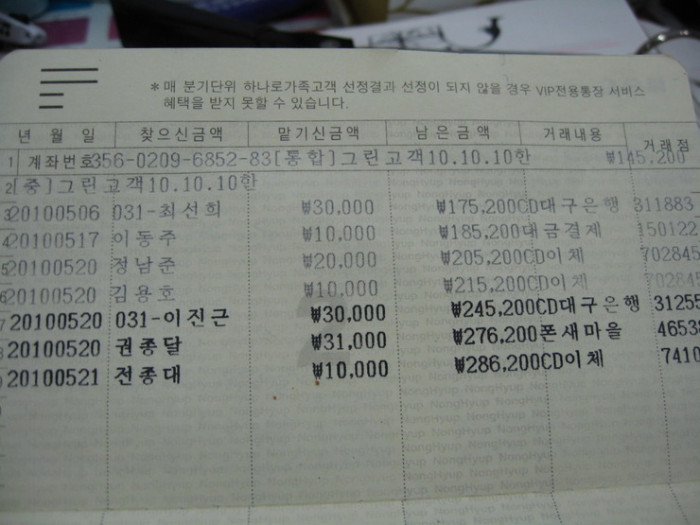 * 매 분기단위 하나로가족고객 선정결과 선정이 되지 않을 경우 VIP전용통장 서비스
혜택을 받지 못할 수 있습니다.
년 월 일 찾으신금액 맡기신금액 남은금액 거래내용 거래점
1 계좌번호356-0209-6852-83[통합]그린고객10.10.10한 ₩145,200
2[중]그린고객10.10.10한
3 20100506 031-최선희 ₩30,000 ₩175,200CD대구은행 311883
4 20100517 이동주 ₩10,000 ₩185,200대금결제 150122
5 20100520 정남준 ₩20,000 ₩205,200CD이체 702845
6 20100520 김용호 ₩10,000 ₩215,200CD이체 702845
7 20100520 031-이진근 ₩30,000 ₩245,200CD대구은행 31255
8 20100520 권종달 ₩31,000 ₩276,200폰새마을 4653
9 20100521 전종대 ₩10,000 ₩286,200CD이체 7410
NongHyup NongHyup NongHyup